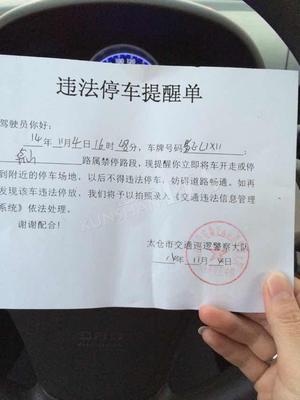 违法停车提醒单
驾驶员你好：
14年11月4日16时48分，车牌号码
路属禁停路段，现提醒你立即将车开走或停
到附近的停车场地，以后不得违法停车，妨碍道路畅通。如再
发现该车违法停放，我们将予以拍照录入《交通违法信息管理
系统》依法处理。
谢谢配合！
太仓市交通巡逻警察大队
14年11月4日